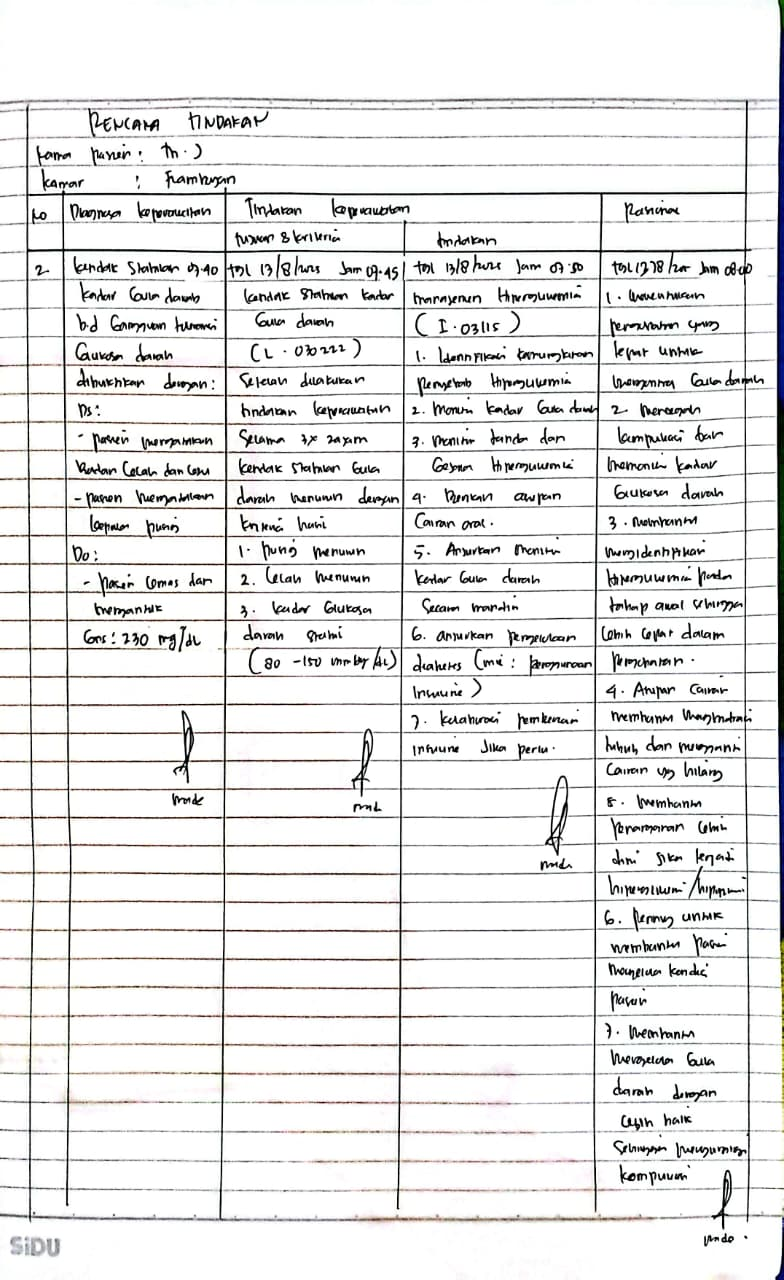 RENCANA TINDAKAN
Nama pasien : Tn. J
Kamar : Frambusan
No Diagnosa keperawatan
Tindakan keperawatan
Rasional
Tujuan & kriteria
tindakan
2 Ketidak Stabilan 07.40
kadar Gula darah
b.d Gangguan toleransi
Glukosa darah
dibuktikan dengan :
Ds :
- pasien mengatakan
badan Lelah dan Lesu
- pasien mengatakan
kepala pusing
Do :
- pasien lemas dan
mengantuk
GDS : 230 mg/dL
tgl 13/8/2025 Jam 07.45
ketidak Stabilan kadar
Gula darah
(L. 030222)
Setelah dilakukan
tindakan keperawatan
Selama 3x 24jam
ketidak Stabilan Gula
darah menurun dengan
kriteria hasil
1. pusing menurun
2. Lelah menurun
3. kadar Glukosa
darah
(80 -150
tgl 13/8/2025 Jam 07.50
manajemen Hiperglikemia
(I. 03115)
1. Identifikasi kemungkinan
penyebab Hiperglikemia
2. Monitor kadar Gula darah
3. monitor tanda dan
Gejala Hiperglikemia
4. Berikan asupan
Cairan oral.
5. Anjurkan monitor
kadar Gula darah
Secara mandiri
6. anjurkan pengelolaan
diabetes (mis : penggunaan
Insulin)
7. kolaborasi pemberian
insulin Jika perlu.
Jam 08.00
1. menentukan
perawatan yang
tepat untuk
Gula darah
2. mencegah
komplikasi dan
kadar
Glukosa darah
3. membantu
mengidentifikasi
Hiperglikemia pada
tahap awal sehingga
Lebih cepat dalam
4. Asupan Cairan
membantu
tubuh dan mengganti
Cairan yg hilang
5. membantu
penanganan Lebih
dini Jika terjadi
6. penting untuk
membantu pasien
mengelola kondisi
pasien
7. membantu
mengelola Gula
darah dengan
Lebih baik
Sehingga mengurangi
komplikasi
SiDU